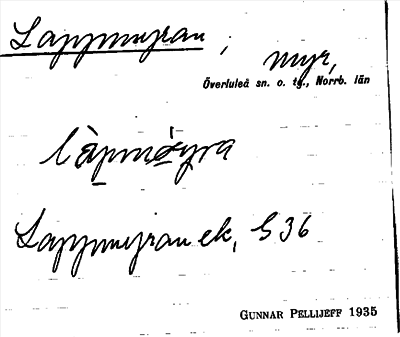 Lappmyran,
myr,
Överluleå sn. o. tg., Norrb. län
Lappmyran ek, S 36
GUNNAR PELLIJEFF 1935